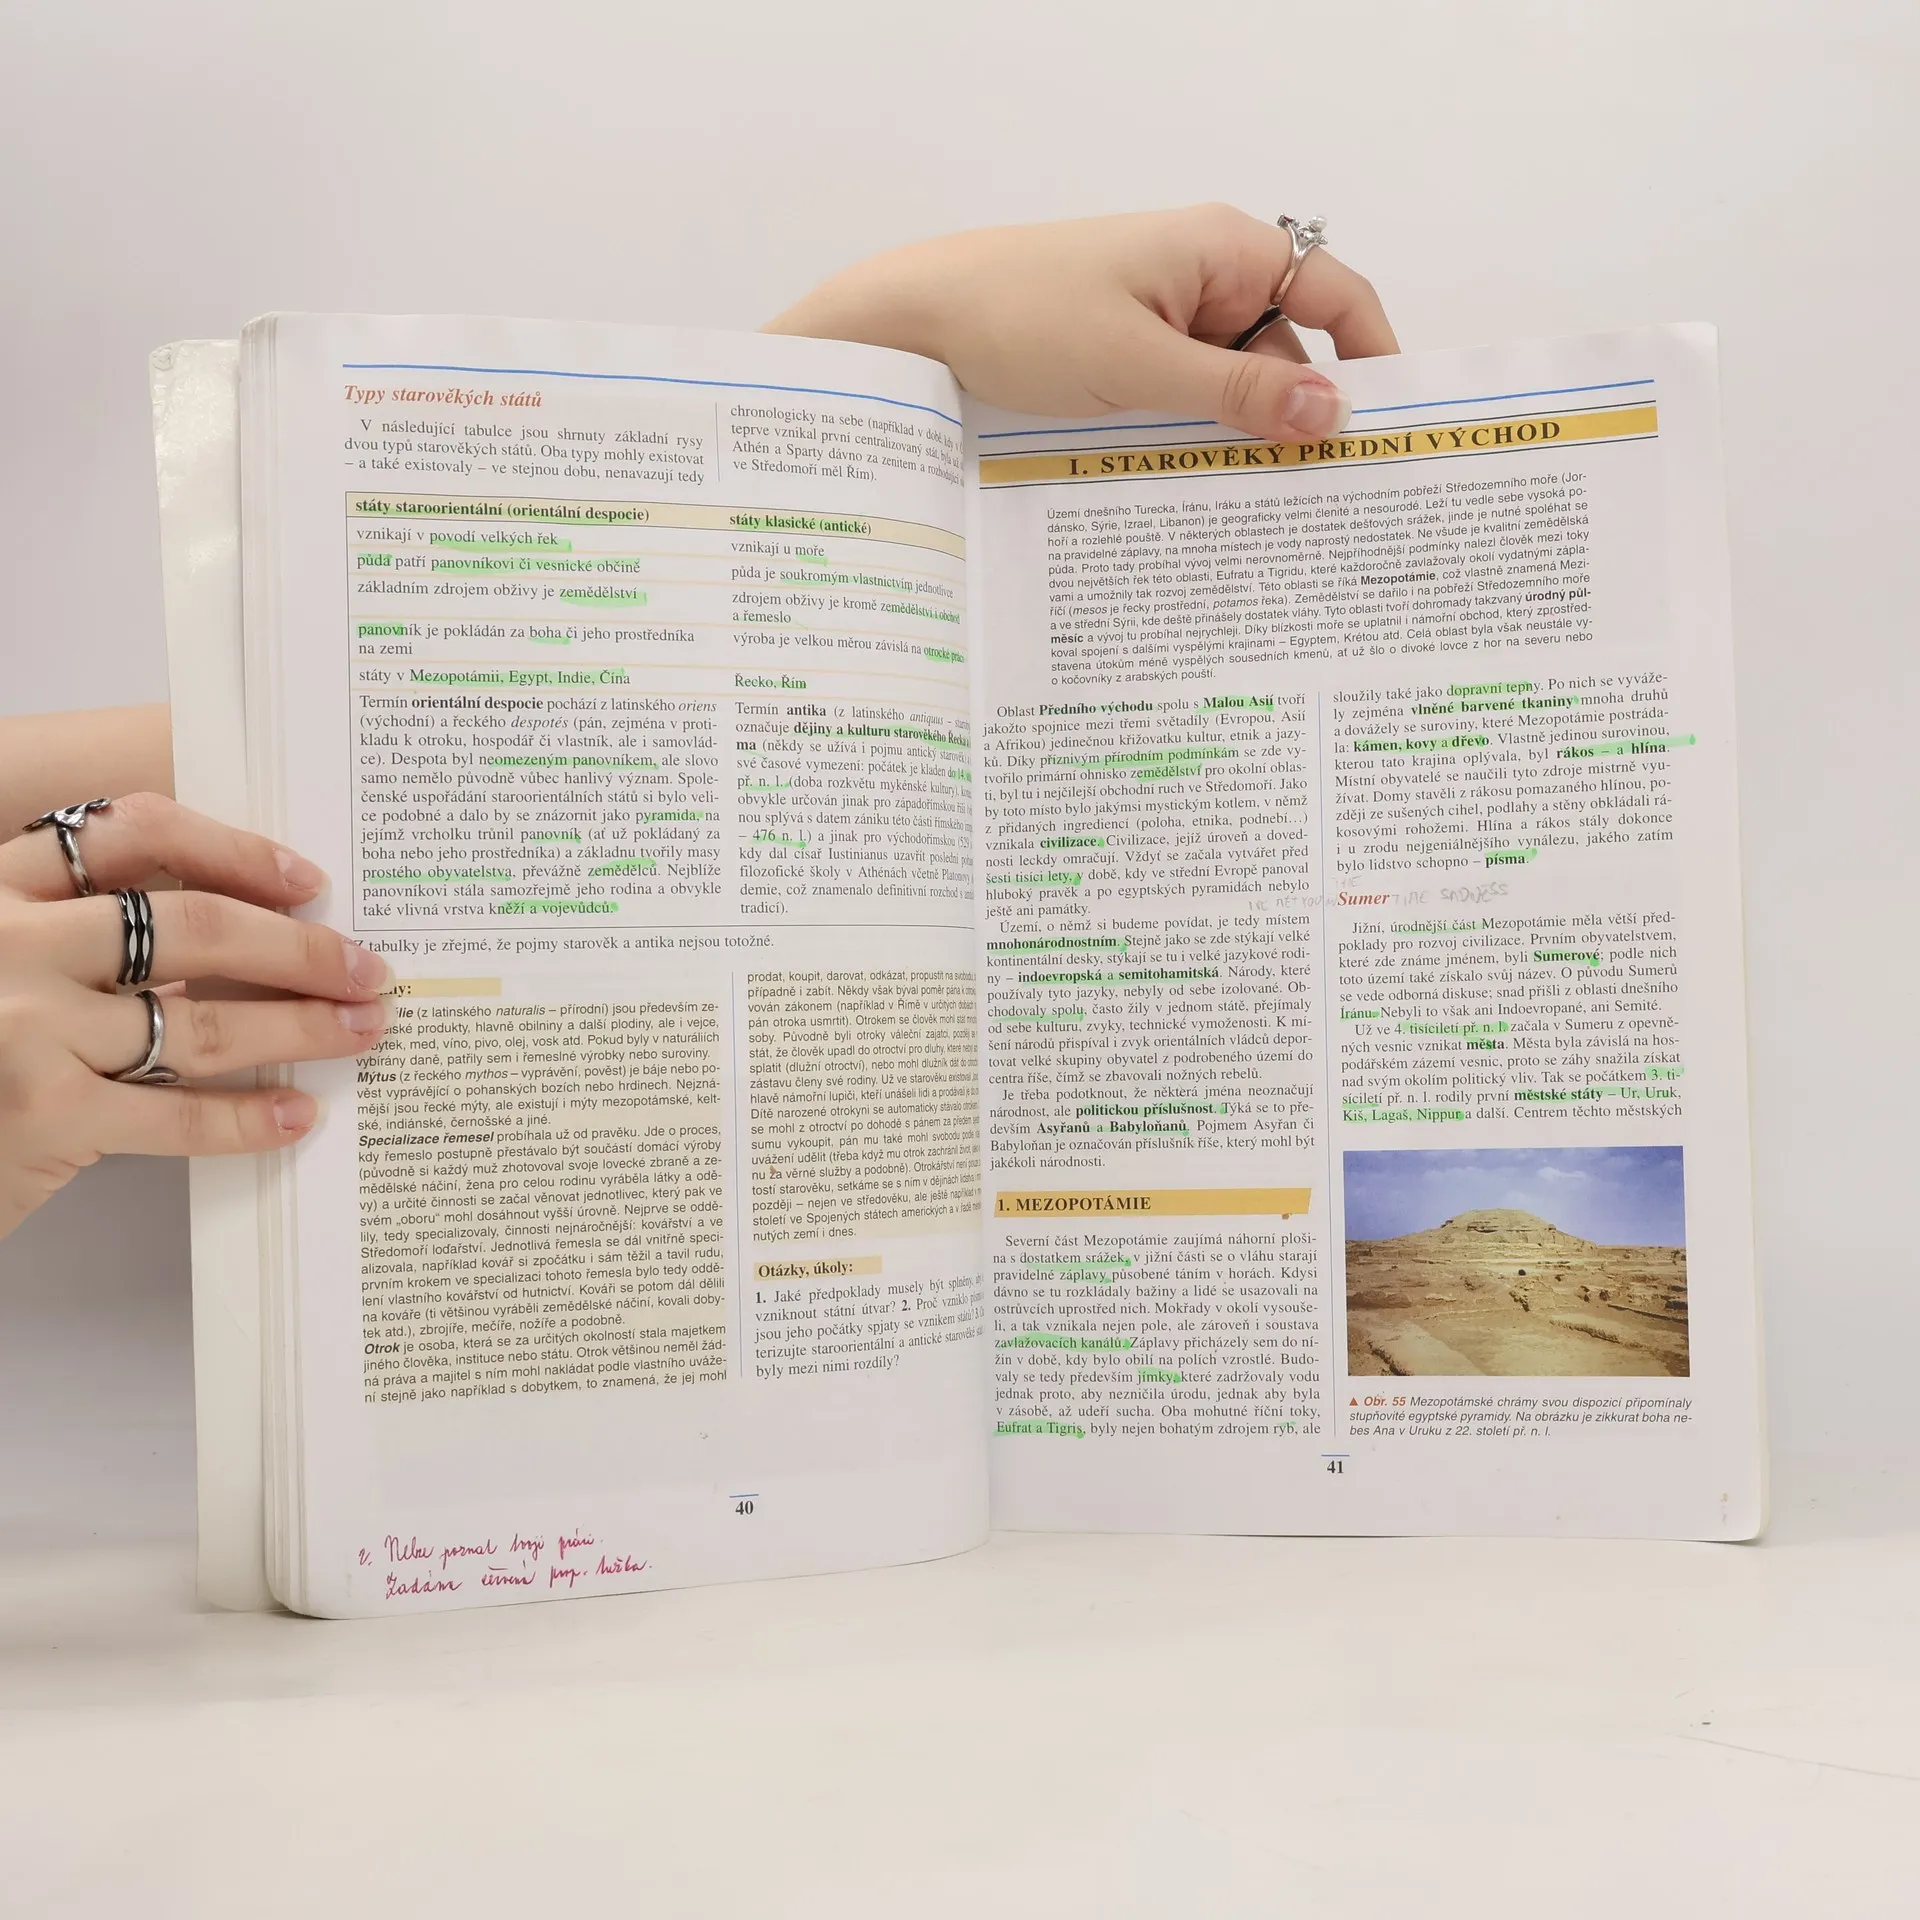 Typy starověkých států
V následující tabulce jsou shrnuty základní rysy
dvou typů starověkých států. Oba typy mohly existovat
– a také existovaly – ve stejnou dobu, nenavazují tedy
chronologicky na sebe (například v době, kdy v
teprve vznikal první centralizovaný stát, byla už
Athén a Sparty dávno za zenitem a rozhodující
ve Středomoří měl Řím).
státy staroorientální (orientální despocie)
státy klasické (antické)
vznikají v povodí velkých řek
vznikají u moře
půda patří panovníkovi či vesnické občině
půda je soukromým vlastnictvím jednotlivce
základním zdrojem obživy je zemědělství
zdrojem obživy je kromě zemědělství i obchod
a řemeslo
panovník je pokládán za boha či jeho prostředníka
na zemi
výroba je velkou měrou závislá na otrocké práci
státy v Mezopotámii, Egypt, Indie, Čína
Řecko, Řím
Termín orientální despocie pochází z latinského oriens
(východní) a řeckého despotés (pán, zejména v proti-
kladu k otroku, hospodář či vlastník, ale i samovlád-
ce). Despota byl neomezeným panovníkem, ale slovo
samo nemělo původně vůbec hanlivý význam. Spole-
čenské uspořádání staroorientálních států si bylo veli-
ce podobné a dalo by se znázornit jako pyramida, na
jejímž vrcholku trůnil panovník (ať už pokládaný za
boha nebo jeho prostředníka) a základnu tvořily masy
prostého obyvatelstva, převážně zemědělců. Nejblíže
panovníkovi stála samozřejmě jeho rodina a obvykle
také vlivná vrstva kněží a vojevůdců.
Termín antika (z latinského antiquus –
označuje dějiny a kulturu starověkého Řecka a
ma (někdy se užívá i pojmu antický starověk)
své časové vymezení: počátek je kladen do 14.
př. n. l. (doba rozkvětu mykénské kultury),
obvykle určován jinak pro západořímskou říši
nou splývá s datem zániku této části římského
– 476 n. l.) a jinak pro východořímskou (529
kdy dal císař Iustinianus uzavřít poslední
filozofické školy v Athénách včetně Platonovy
demie, což znamenalo definitivní rozchod s
tradicí).
tabulky je zřejmé, že pojmy starověk a antika nejsou totožné.
(z latinského naturalis – přírodní) jsou především ze-
produkty, hlavně obilniny a další plodiny, ale i vejce,
med, víno, pivo, olej, vosk atd. Pokud byly v naturáliích
vybírány daně, patřily sem i řemeslné výrobky nebo suroviny.
Mýtus (z řeckého mythos – vyprávění, pověst) je báje nebo po-
věst vyprávějící o pohanských bozích nebo hrdinech. Nejzná-
mější jsou řecké mýty, ale existují i mýty mezopotámské, kelt-
ské, indiánské, černošské a jiné.
Specializace řemesel probíhala už od pravěku. Jde o proces,
kdy řemeslo postupně přestávalo být součástí domácí výroby
(původně si každý muž zhotovoval svoje lovecké zbraně a ze-
mědělské náčiní, žena pro celou rodinu vyráběla látky a odě-
vy) a určité činnosti se začal věnovat jednotlivec, který pak ve
svém „oboru" mohl dosáhnout vyšší úrovně. Nejprve se oddě-
lily, tedy specializovaly, činnosti nejnáročnější: kovářství a ve
Středomoří loďařství. Jednotlivá řemesla se dál vnitřně speci-
alizovala, například kovář si zpočátku i sám těžil a tavil rudu,
prvním krokem ve specializaci tohoto řemesla bylo tedy oddě-
lení vlastního kovářství od hutnictví. Kováři se potom dál dělili
na kováře (ti většinou vyráběli zemědělské náčiní, kovali doby-
tek atd.), zbrojíře, mečíře, nožíře a podobně.
Otrok je osoba, která se za určitých okolností stala majetkem
jiného člověka, instituce nebo státu. Otrok většinou neměl žád-
ná práva a majitel s ním mohl nakládat podle vlastního uváže-
ní stejně jako například s dobytkem, to znamená, že jej mohl
prodat, koupit, darovat, odkázat, propustit na svobodu,
případně i zabít. Někdy však býval poměr pána k
vován zákonem (například v Římě v určitých dobách
pán otroka usmrtit). Otrokem se člověk mohl stát
soby. Původně byli otroky váleční zajatci, později se
stát, že člověk upadl do otroctví pro dluhy, které nebyl
splatit (dlužní otroctví), nebo mohl dlužník dát do
zástavu členy své rodiny. Už ve starověku existovali
hlavě námořní lupiči, kteří unášeli lidi a prodávali je do
Dítě narozené otrokyni se automaticky stávalo otrokem.
se mohl z otroctví po dohodě s pánem za předem
sumu vykoupit, pán mu také mohl svobodu podle
uvážení udělit (třeba když mu otrok zachránil život,
nu za věrné služby a podobně). Otrokářství není
tostí starověku, setkáme se s ním v dějinách
později – nejen ve středověku, ale ještě například v
století ve Spojených státech amerických a v řadě
nutých zemí i dnes.
Otázky, úkoly:
1. Jaké předpoklady musely být splněny, aby
vzniknout státní útvar? 2. Proč vzniklo
jsou jeho počátky spjaty se vznikem států? 3.
terizujte staroorientální a antické starověké
byly mezi nimi rozdíly?
40
2. Nelze poznat tvoji práci.
Zadána červená prop. tužka.
I. STAROVĚKÝ PŘEDNÍ VÝCHOD
Území dnešního Turecka, Íránu, Iráku a států ležících na východním pobřeží Středozemního moře (Jor-
dánsko, Sýrie, Izrael, Libanon) je geograficky velmi členité a nesourodé. Leží tu vedle sebe vysoká po-
hoří a rozlehlé pouště. V některých oblastech je dostatek dešťových srážek, jinde je nutné spoléhat se
na pravidelné záplavy, na mnoha místech je vody naprostý nedostatek. Ne všude je kvalitní zemědělská
půda. Proto tady probíhal vývoj velmi nerovnoměrně. Nejpříhodnější podmínky nalezl člověk mezi toky
dvou největších řek této oblasti, Eufratu a Tigridu, které každoročně zavlažovaly okolí vydatnými zápla-
vami a umožnily tak rozvoj zemědělství. Této oblasti se říká Mezopotámie, což vlastně znamená Mezi-
říčí (mesos je řecky prostřední, potamos řeka). Zemědělství se dařilo i na pobřeží Středozemního moře
a ve střední Sýrii, kde deště přinášely dostatek vláhy. Tyto oblasti tvoří dohromady takzvaný úrodný půl-
měsíc a vývoj tu probíhal nejrychleji. Díky blízkosti moře se uplatnil i námořní obchod, který zprostřed-
koval spojení s dalšími vyspělými krajinami – Egyptem, Krétou atd. Celá oblast byla však neustále vy-
stavena útokům méně vyspělých sousedních kmenů, ať už šlo o divoké lovce z hor na severu nebo
o kočovníky z arabských pouští.
Oblast Předního východu spolu s Malou Asií tvoří
jakožto spojnice mezi třemi světadíly (Evropou, Asií
a Afrikou) jedinečnou křižovatku kultur, etnik a jazy-
ků. Díky příznivým přírodním podmínkám se zde vy-
tvořilo primární ohnisko zemědělství pro okolní oblas-
ti, byl tu i nejčilejší obchodní ruch ve Středomoří. Jako
by toto místo bylo jakýmsi mystickým kotlem, v němž
z přidaných ingrediencí (poloha, etnika, podnebí…)
vznikala civilizace. Civilizace, jejíž úroveň a doved-
nosti leckdy omračují. Vždyť se začala vytvářet před
šesti tisíci lety, v době, kdy ve střední Evropě panoval
hluboký pravěk a po egyptských pyramidách nebylo
ještě ani památky.
Území, o němž si budeme povídat, je tedy místem
mnohonárodnostním. Stejně jako se zde stýkají velké
kontinentální desky, stýkají se tu i velké jazykové rodi-
ny – indoevropská a semitohamitská. Národy, které
používaly tyto jazyky, nebyly od sebe izolované. Ob-
chodovaly spolu, často žily v jednom státě, přejímaly
od sebe kulturu, zvyky, technické vymoženosti. K mí-
šení národů přispíval i zvyk orientálních vládců depor-
tovat velké skupiny obyvatel z podrobeného území do
centra říše, čímž se zbavovali možných rebelů.
Je třeba podotknout, že některá jména neoznačují
národnost, ale politickou příslušnost. Týká se to pře-
devším Asyřanů a Babyloňanů. Pojmem Asyřan či
Babyloňan je označován příslušník říše, který mohl být
jakékoli národnosti.
1. MEZOPOTÁMIE
Severní část Mezopotámie zaujímá náhorní ploši-
na s dostatkem srážek, v jižní části se o vláhu starají
pravidelné záplavy působené táním v horách. Kdysi
dávno se tu rozkládaly bažiny a lidé se usazovali na
ostrůvcích uprostřed nich. Mokřady v okolí vysouše-
li, a tak vznikala nejen pole, ale zároveň i soustava
zavlažovacích kanálů. Záplavy přicházely sem do ní-
žin v době, kdy bylo obilí na polích vzrostlé. Budo-
valy se tedy především jímky, které zadržovaly vodu
jednak proto, aby nezničila úrodu, jednak aby byla
v zásobě, až udeří sucha. Oba mohutné říční toky,
Eufrat a Tigris, byly nejen bohatým zdrojem ryb, ale
sloužily také jako dopravní tepny. Po nich se vyváže-
ly zejména vlněné barvené tkaniny mnoha druhů
a dovážely se suroviny, které Mezopotámie postráda-
la: kámen, kovy a dřevo. Vlastně jedinou surovinou,
kterou tato krajina oplývala, byl rákos – a hlína.
Místní obyvatelé se naučili tyto zdroje mistrně vyu-
žívat. Domy stavěli z rákosu pomazaného hlínou, po-
zději ze sušených cihel, podlahy a stěny obkládali rá-
kosovými rohožemi. Hlína a rákos stály dokonce
i u zrodu nejgeniálnějšího vynálezu, jakého zatím
bylo lidstvo schopno – písma.
Sumer TIME SADNESS
Jižní, úrodnější část Mezopotámie měla větší před-
poklady pro rozvoj civilizace. Prvním obyvatelstvem,
které zde známe jménem, byli Sumerové; podle nich
toto území také získalo svůj název. O původu Sumerů
se vede odborná diskuse; snad přišli z oblasti dnešního
Íránu. Nebyli to však ani Indoevropané, ani Semité.
Už ve 4. tisíciletí př. n. l. začala v Sumeru z opevně-
ných vesnic vznikat města. Města byla závislá na hos-
podářském zázemí vesnic, proto se záhy snažila získat
nad svým okolím politický vliv. Tak se počátkem 3. ti-
síciletí př. n. l. rodily první městské státy – Ur, Uruk,
Kiš, Lagaš, Nippur a další. Centrem těchto městských
▲ Obr. 55 Mezopotámské chrámy svou dispozicí připomínaly
stupňovité egyptské pyramidy. Na obrázku je zikkurat boha ne-
bes Ana v Uruku z 22. století př. n. l.
41